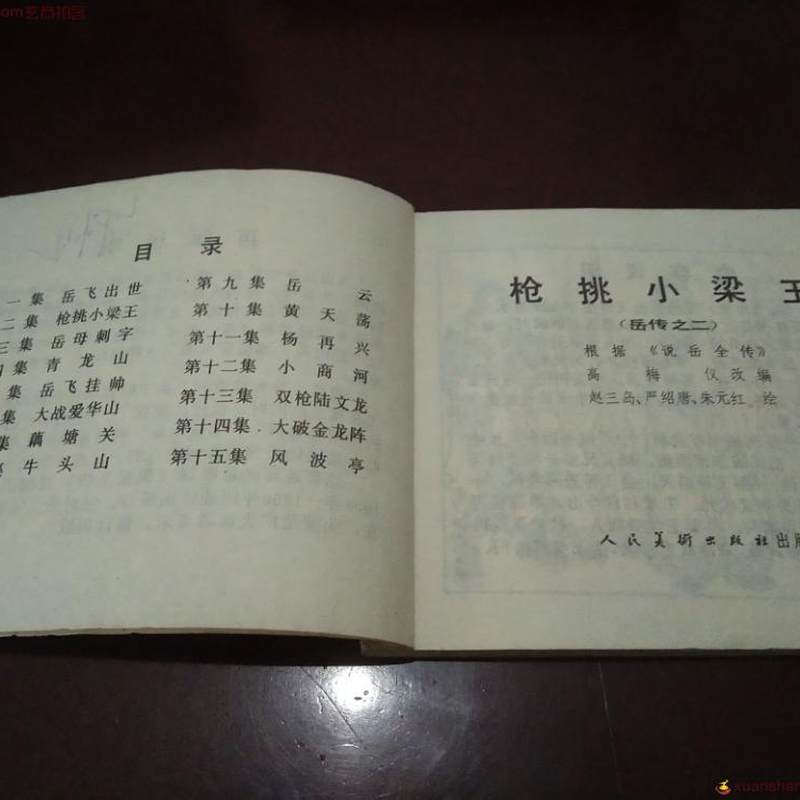 目 录
一集 岳飞出世
二集 枪挑小梁王
三集 岳母刺字
四集 青龙山
集 岳飞挂帅
集 大战爱华山
集 藕塘关
牛头山
第九集 岳云
第十集 黄天荡
第十一集 杨再兴
第十二集 小商河
第十三集 双枪陆文龙
第十四集 大破金龙阵
第十五集 风波亭
枪挑小梁王
(岳传之二)
根据《说岳全传》
高梅仪改编
赵三岛、严绍唐、朱元红 绘
人民美術出版社出版
xuanshan